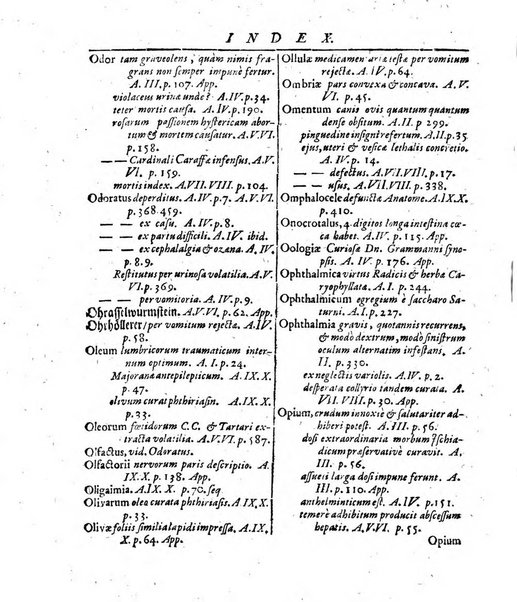 INDEX.
Odor tam graveolens, quàm nimis fra-
grans non semper impunè fertur.
A. III. p. 107. App.
violaceus urinæ unde? A. IV. p. 34.
teter mortis causa. A. IV. p. 190.
rosarum passionem hystericam abor-
tum & mortem causatur. A. V. VI.
p. 158.
— — Cardinali Caraffæ infensus. A. V.
VI. p. 159.
mortis index. A. VII. VIII. p. 104.
Odoratus deperditus. A. V. VI. p. 7.
p. 368. 459.
— — ex casu. A. IV. p. 8.
— — ex partu difficili. A. IV. ibid.
— — ex cephalalgia & ozæna. A. IV.
p. 8. 9.
Restitutus per urinosa volatilia. A. V I.
p. 369.
— — per vomitoria. A. IV. p. 9.
Ohrasselwurmstein. A. V. VI. p. 62. App.
Ohrhölleter/ per vomitum rejecta. A. IV.
p. 58.
Oleum lumbricorum traumaticum inter-
num optimum. A. I. p. 24.
Majoranæ antepilepticum. A. IX. X.
p. 47.
olivum curat phthiriasin. A. IX. X.
p. 33.
Oleorum fœtidorum C. C. & Tartari ex-
tracta volatilia. A. V. VI. p. 587.
Olfactus, vid. Odoratus.
Olfactorii nervorum paris descriptio. A.
IX. X. p. 138. App.
Oligaimia. A. IX. X. p. 70. seq
Olivarum olea curat phthiriasin. A. IX. X.
p. 33.
Olivæ foliis similia lapidi impressa. A. IX.
X. p. 64. App.
Ollulæ medicamentariæ testæ per vomitum
rejectæ. A. IV. p. 64.
Ombriæ pars convexa & concava. A. V.
VI. p. 45.
Omentum canis ovis quantum quantum
dense obsitum. A. II. p 299.
pinguedine insigni refertum. A. II. p. 35
ejus, uteri & vesicæ lethalis concretio.
A. IV. p. 14.
— — defectus. A. VII. VIII. p. 17.
— — usus. A. VII. VIII. p. 338.
Omphalocele defunctæ Anatome. A. IX. X.
p. 410.
Onocrotalus, 4. digitos longa intestina cœ-
ca habet. A. IV. p. 115. App.
Oologiæ Curiosæ Dn. Grammanni syno-
psis. A. IV. p. 176. App.
Ophthalmica virtus Radicis & herbæ Ca-
ryophyllata. A. I. p. 244.
Ophthalmicum egregium è saccharo Sa-
turni. A. I. p. 227.
Ophthalmia gravis, quotannis recurrens,
& modò dextrum, modò sinistrum
oculum alternatim infestans. A.
II. p. 330.
ex neglectis variolis. A. IV. p. 2.
desperata collyrio tandem curata. A.
VII. VIII. p. 30. App.
Opium, crudum innoxiè & salutariter ad-
hiberi potest. A. III. p. 56.
dosi extraordinaria morbum ?schia-
dicum præservativè curavit. A.
III. p. 56.
assueti larga dosi impune ferunt. A.
III. p. 110. App.
anthelminticum est. A. IV. p. 151.
temerè adhibitum producit abscessum
hepatis. A. V. VI. p. 55.
Opium